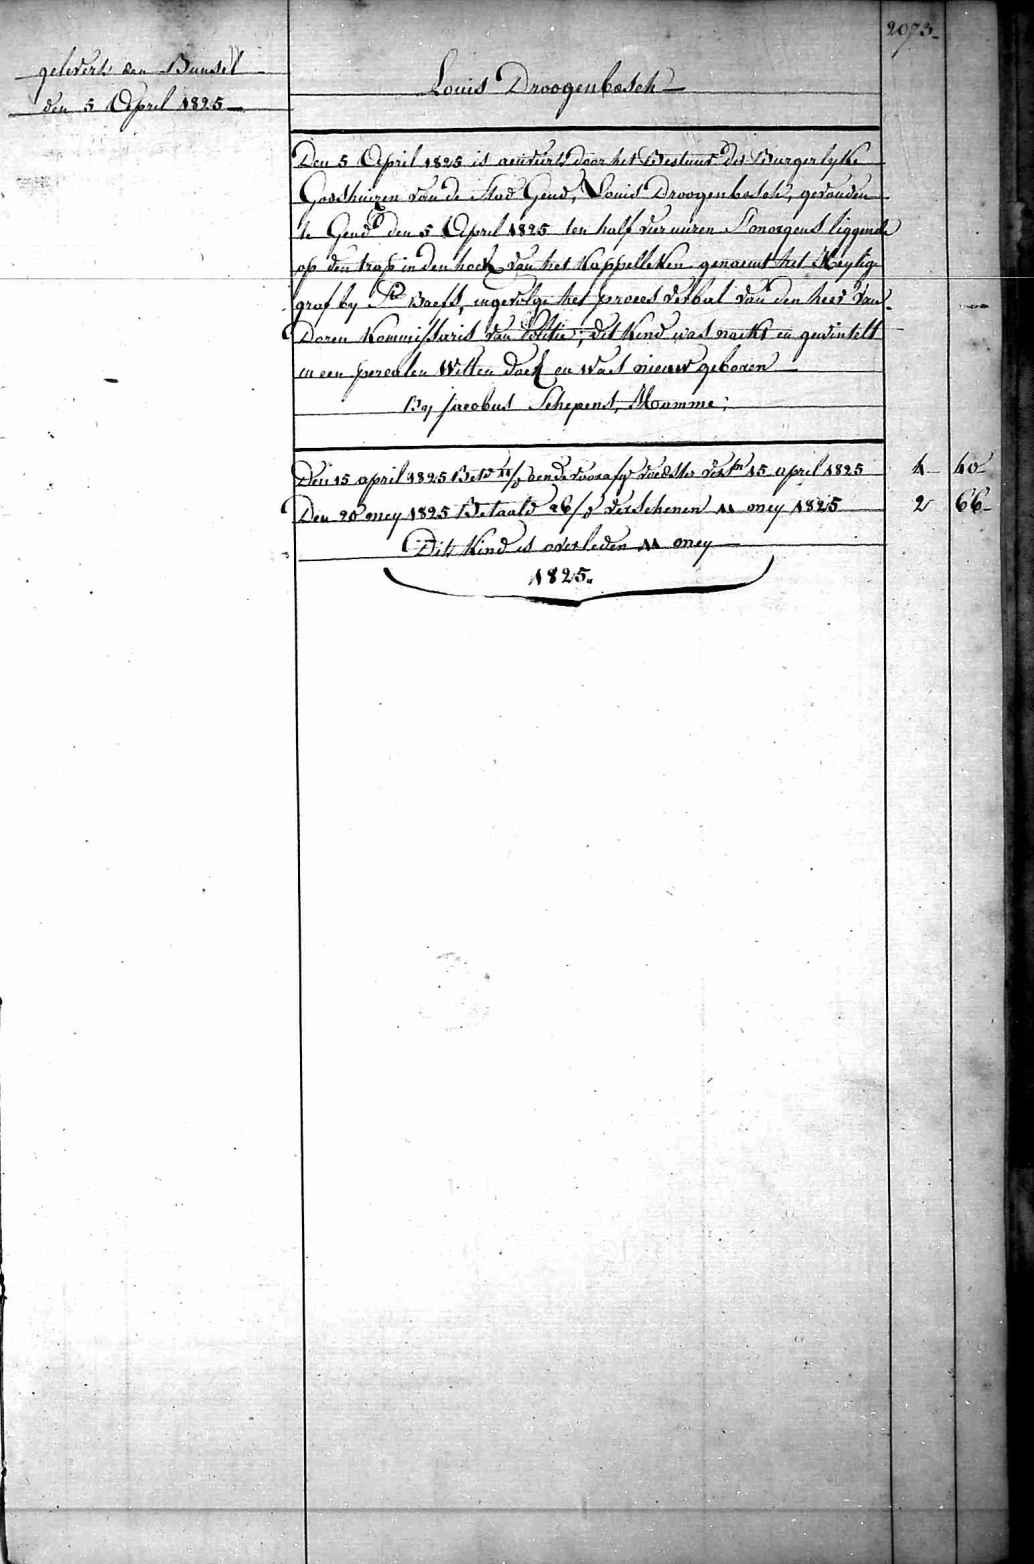 2073.
gelevert den Bunsel
den 5 April 1825
Louis Droogenbosch
Den 5 April 1825 is aenveirt door het Bestuur der Burgerlyke
Godshuizen van de Stad Gend, Louis Droogenbosch, gevonden
te Gend den 5 April 1825 ten half vier uuren S'morgens liggende
op den trap in den hoek van het Kappelleken genaemt het Heylig
graf by Ste Baefs, ingevolge het proces verbal van den heer Van
Doren Kommissaris van Politie; dit Kind was naekt en gewinkelt
in een witten doek en was nieuw geboren
By Jacobus Schepens, Moamme;
Den 15 april 1825 Bet 15 april 1825 4 40
Den 20 mey 1825 Betaald 26/ verschenen 11 mey 1825 2 66
Dit Kind is overleden 11 mey
1825.